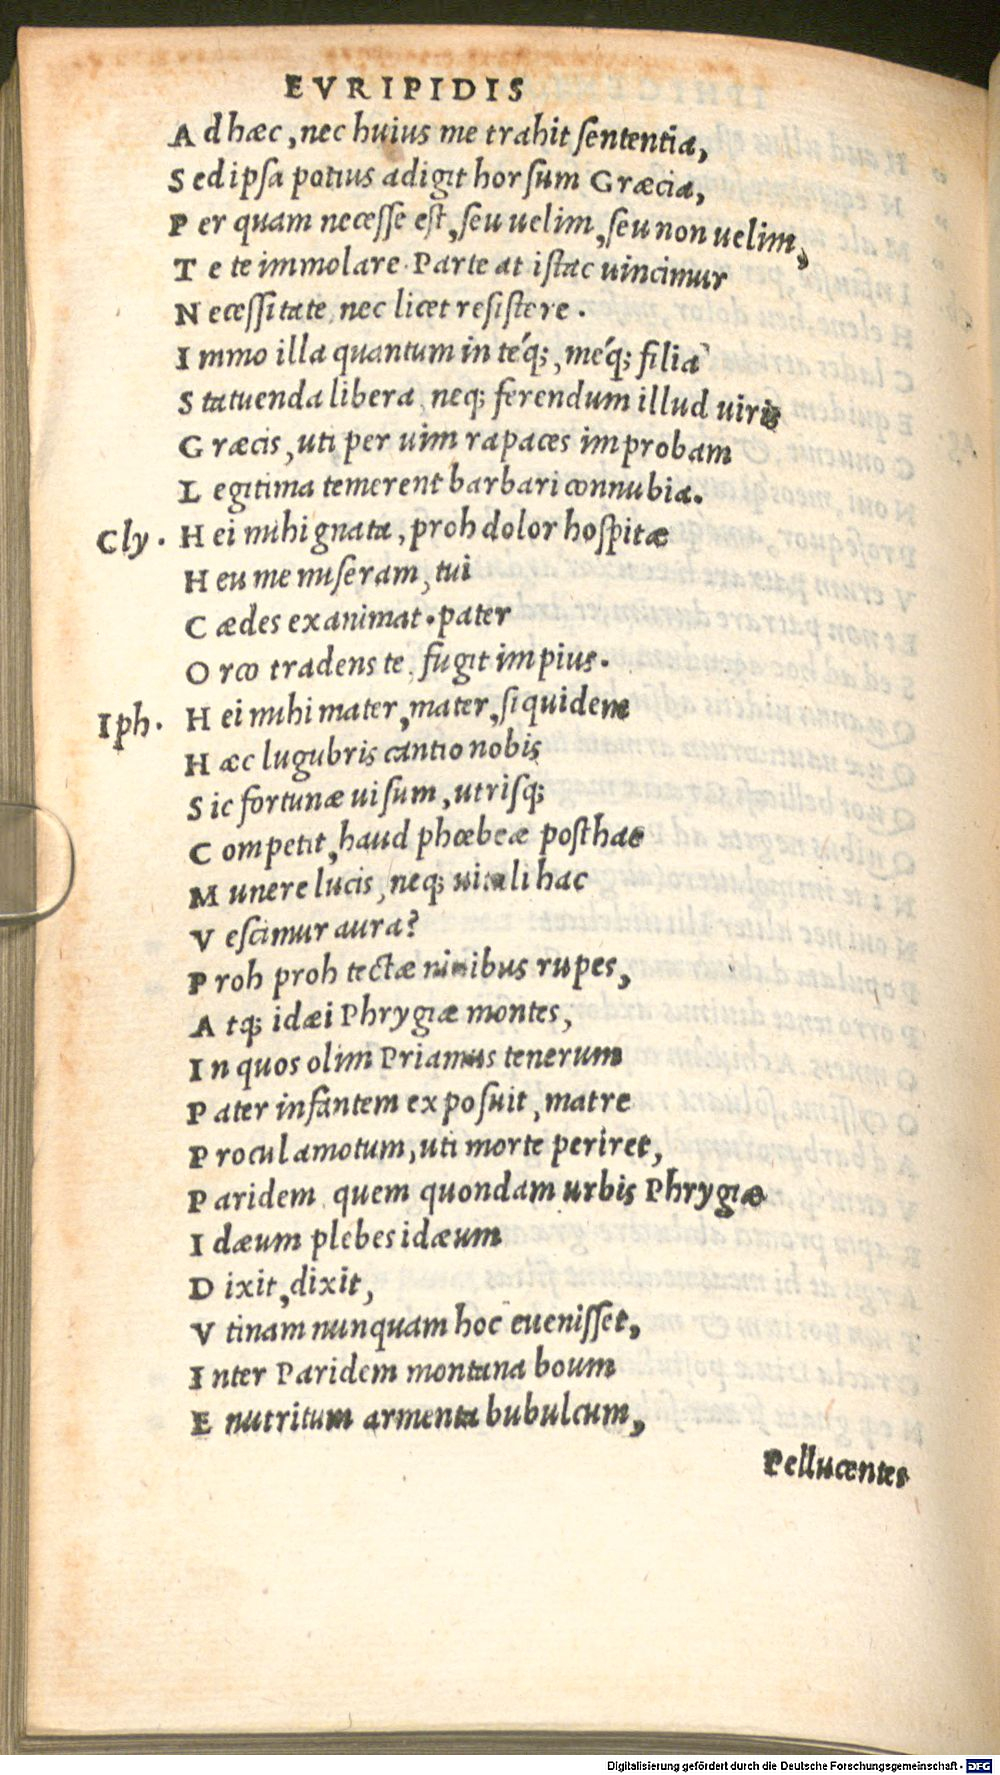 EVRIPIDIS
Ad hæc, nec huius me trahit sententia,
Sed ipsa potius adigit horsum Græcia,
Per quam necesse est, seu uelim, seu non uelim,
Te te immolare. Parte at istac uincimur
Necessitate, nec licet resistere.
Immo illa quantum in téq;, méq; filia
Statuenda libera, neq; ferendum illud uiris
Græcis, uti per uim rapaces improbam
Legitima temerent barbari connubia.
Cly. Hei mihi gnata, proh dolor hospitæ
Heu me miseram, tui
Cædes exanimat. pater
Orco tradens te, fugit impius.
Iph. Hei mihi mater, mater, siquidem
Hæc lugubris cantio nobis
Sic fortunæ uisum, utrisq;
Competit, haud phœbeæ posthac
Munere lucis, neq; uitali hac
Vescimur aura?
Proh proh tectæ niuibus rupes,
Atq; idæi Phrygiæ montes,
In quos olim Priamus tenerum
Pater infantem exposuit, matre
Procul amotum, uti morte periret,
Paridem, quem quondam urbis Phrygiæ
Idæum plebes idæum
Dixit, dixit,
Vtinam nunquam hoc euenisset,
Inter Paridem montana boum
Enutritum armenta bubulcum,
Pellucentes
Digitalisierung gefördert durch die Deutsche Forschungsgemeinschaft - DFG